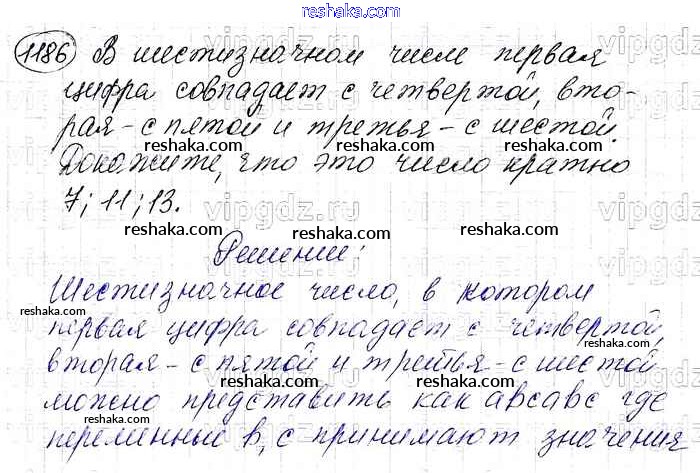 reshaka.com
1186 В шестизначном числе первая
цифра совпадает с четвертой, вто-
рая - с пятой и третья - с шестой.
Докажите, что это число кратно
7; 11; 13.
Решение:
Шестизначное число, в котором
первая цифра совпадает с четвертой,
вторая - с пятой и третья - с шестой
можно представить как авсавс где
переменные в, с принимают значения